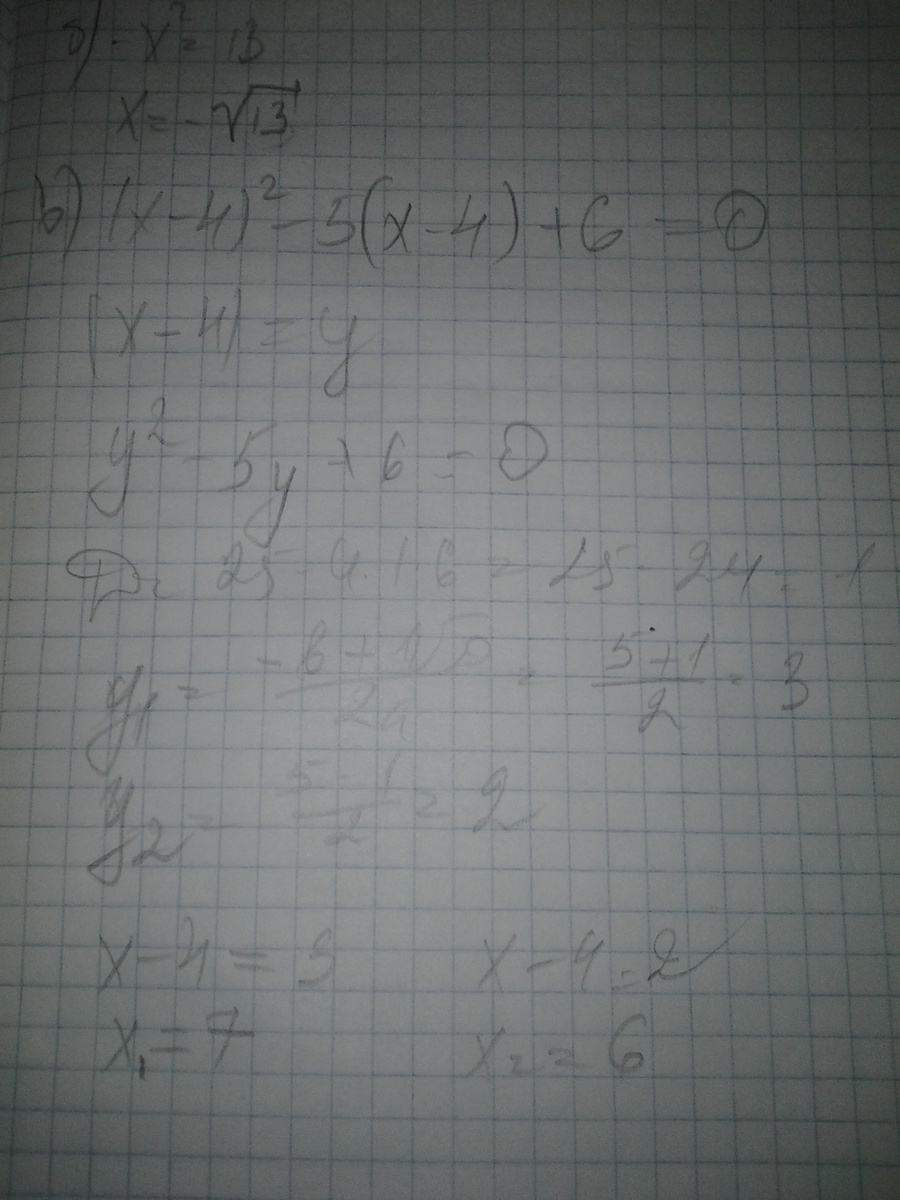 б) -x² = 13
x = -√13
в) (x-4)² - 5(x-4) + 6 = 0
(x-4) = y
y² - 5y + 6 = 0
D = 25 - 4·1·6 = 25 - 24 = 1
y₁ = = (5+1)/2 = 3
y₂ = (5-1)/2 = 2
x-4 = 3 x-4 = 2
x₁ = 7 x₂ = 6